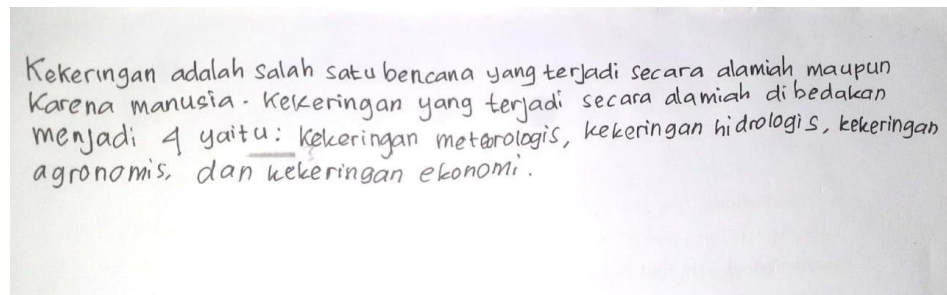 Kekeringan adalah salah satu bencana yang terjadi secara alamiah maupun
karena manusia. Kekeringan yang terjadi secara alamiah dibedakan
menjadi 4 yaitu: kekeringan meteorologis, kekeringan hidrologis, kekeringan
agronomis, dan kekeringan ekonomi.